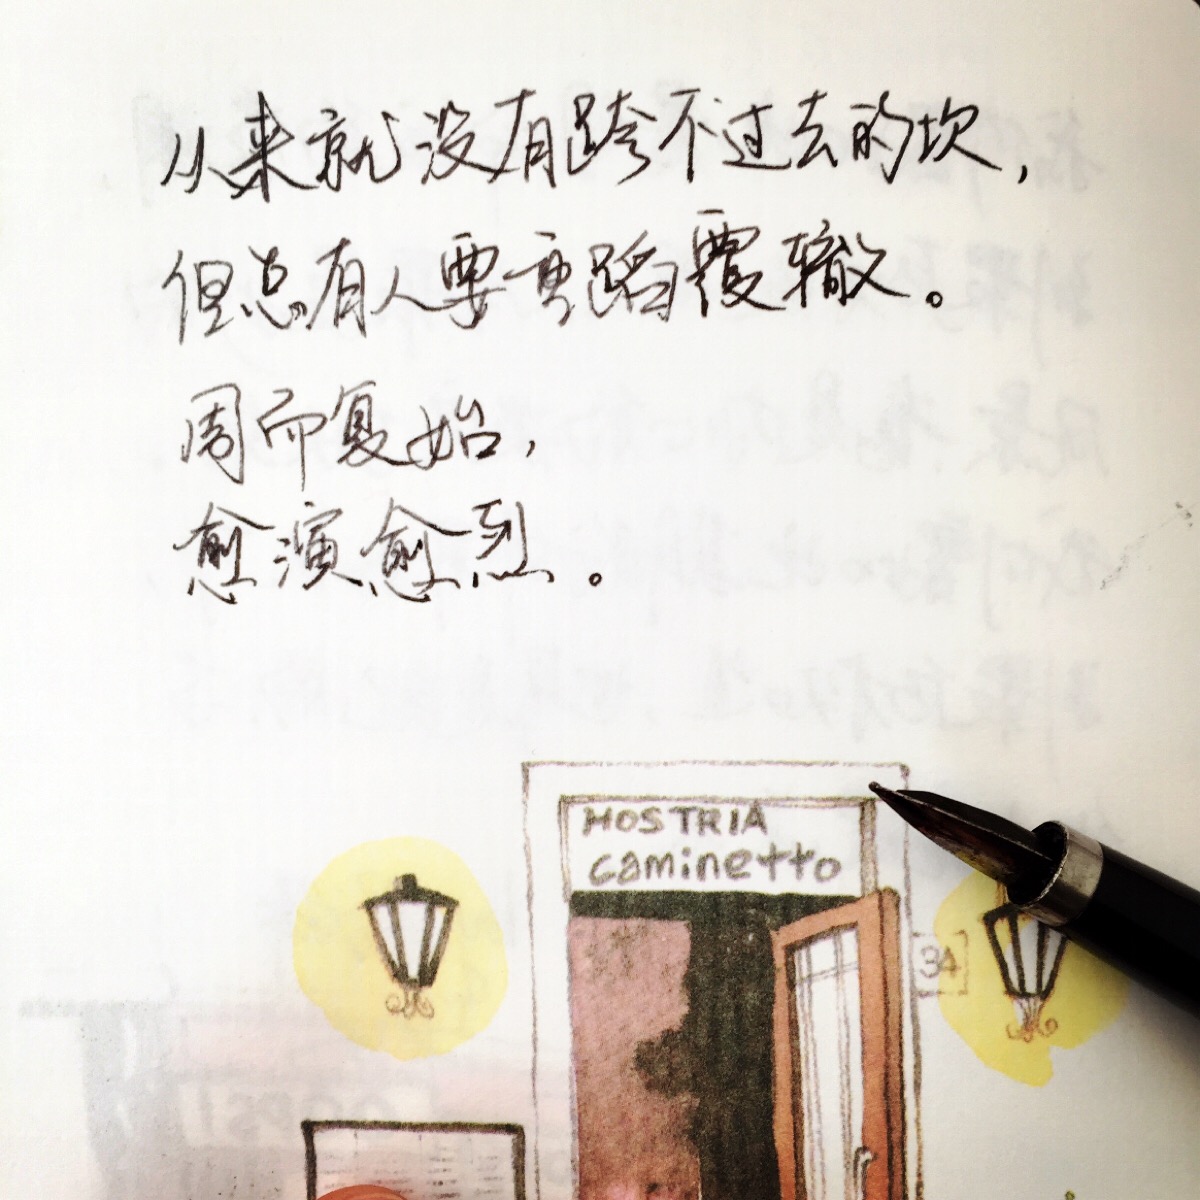 从来就没有跨不过去的坎，
但总有人要重蹈覆辙。
周而复始，
愈演愈烈。
HOSTRIA
caminetto
34